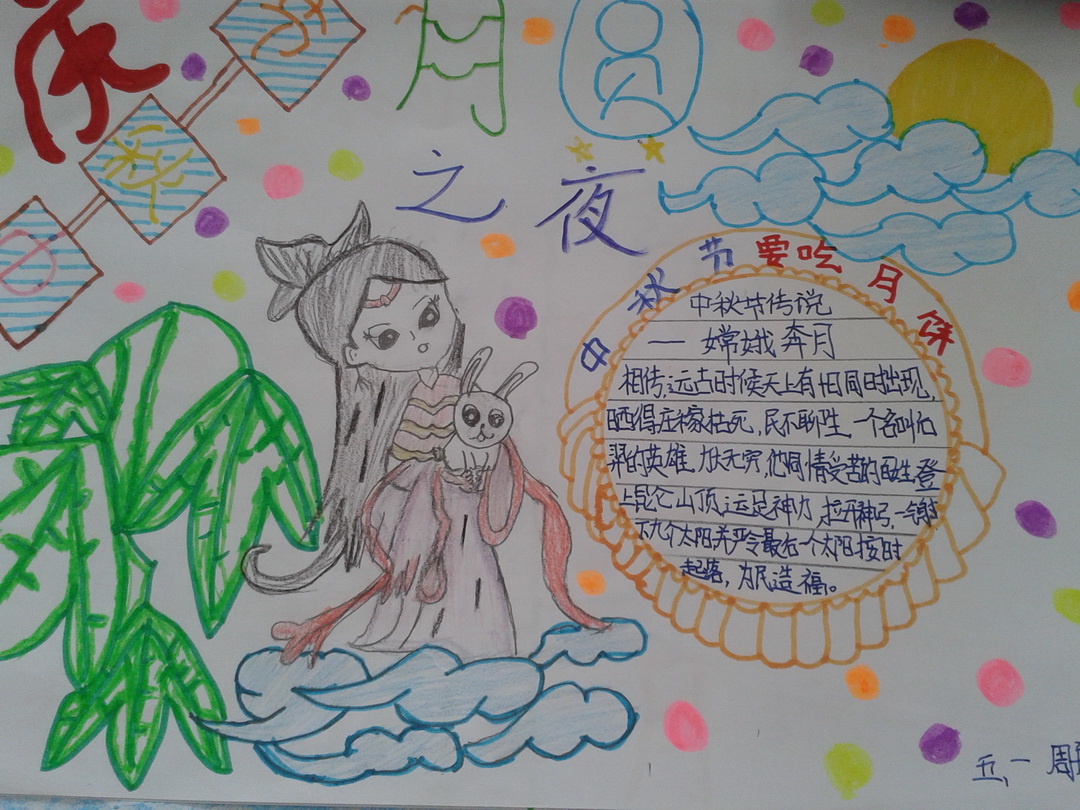 中秋
月圆
之夜
中秋节要吃月饼
中秋节传说
— 嫦娥奔月
相传,远古时候天上有十日同时出现,
晒得庄稼枯死,民不聊生,一个名叫后
羿的英雄,力大无穷,他同情受苦的百姓,登
上昆仑山顶,运足神力,拉开神弓,一气射
下九个太阳,并严令最后一个太阳按时
起落,为民造福。
五、一 周